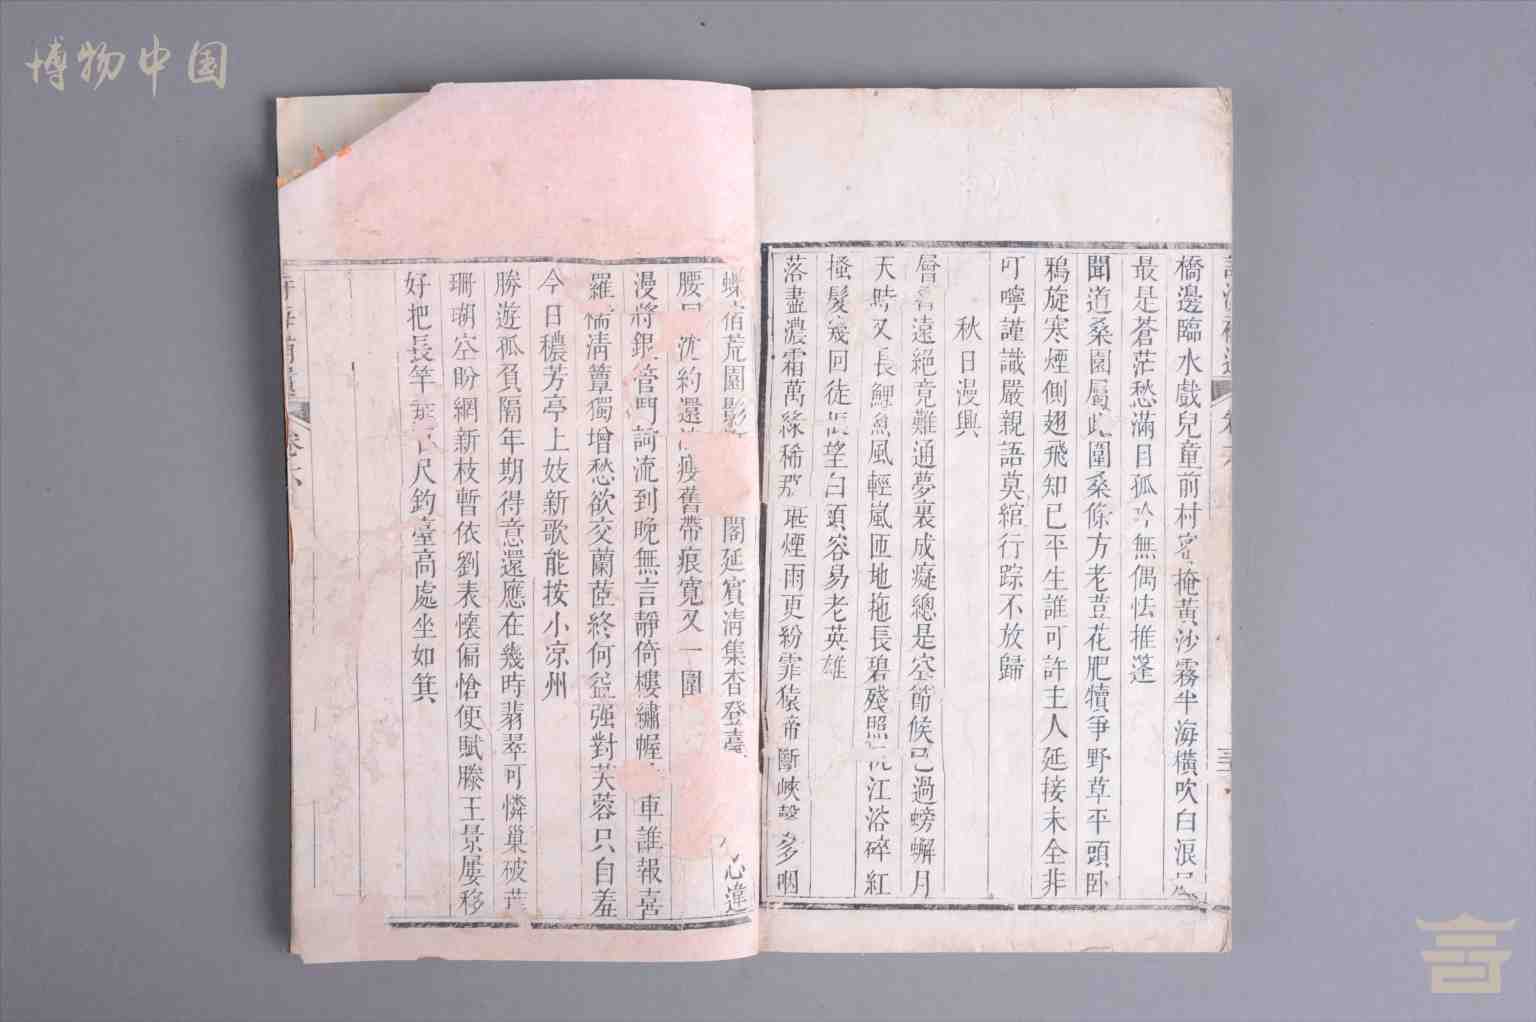 博物中国
橋邊臨水戲兒童前村 掩黃沙霧半海橫吹白浪
最是蒼茫愁滿目孤吟無偶怯推蓬
聞道桑園屬此圍桑條方老荳花肥犢爭野草平頭臥
鴉旋寒煙側翅飛知已平生誰可許主人延接未全非
叮嚀謹識嚴親語莫綰行踪不放歸
秋日漫興
層 遠絕竟難通夢裏成癡總是空節候已過螃蠏月
天時又長鯉魚風輕嵐匝地拖長碧殘照 江浴碎紅
搔髮幾回徒悵望白頭容易老英雄
落盡濃霜萬緣稀那堪煙雨更紛霏猿啼斷峽聲多咽
蝶宿荒園影 閣延賓清集杳登臺 心違
腰 沈約還 瘦舊帶痕寬又一圍
漫將銀管鬥詞流到晚無言靜倚樓繡幄 車誰報喜
羅 清簟獨增愁欲交蘭茝終何益强對芙蓉只自羞
今日穠芳亭上妓新歌能按小凉州
勝遊孤負隔年期得意還應在幾時翡翠可憐巢破
珊瑚空盼網新枝暫依劉表懷偏愴便賦滕王景屢移
好把長竿 尺釣臺高處坐如箕
卷六